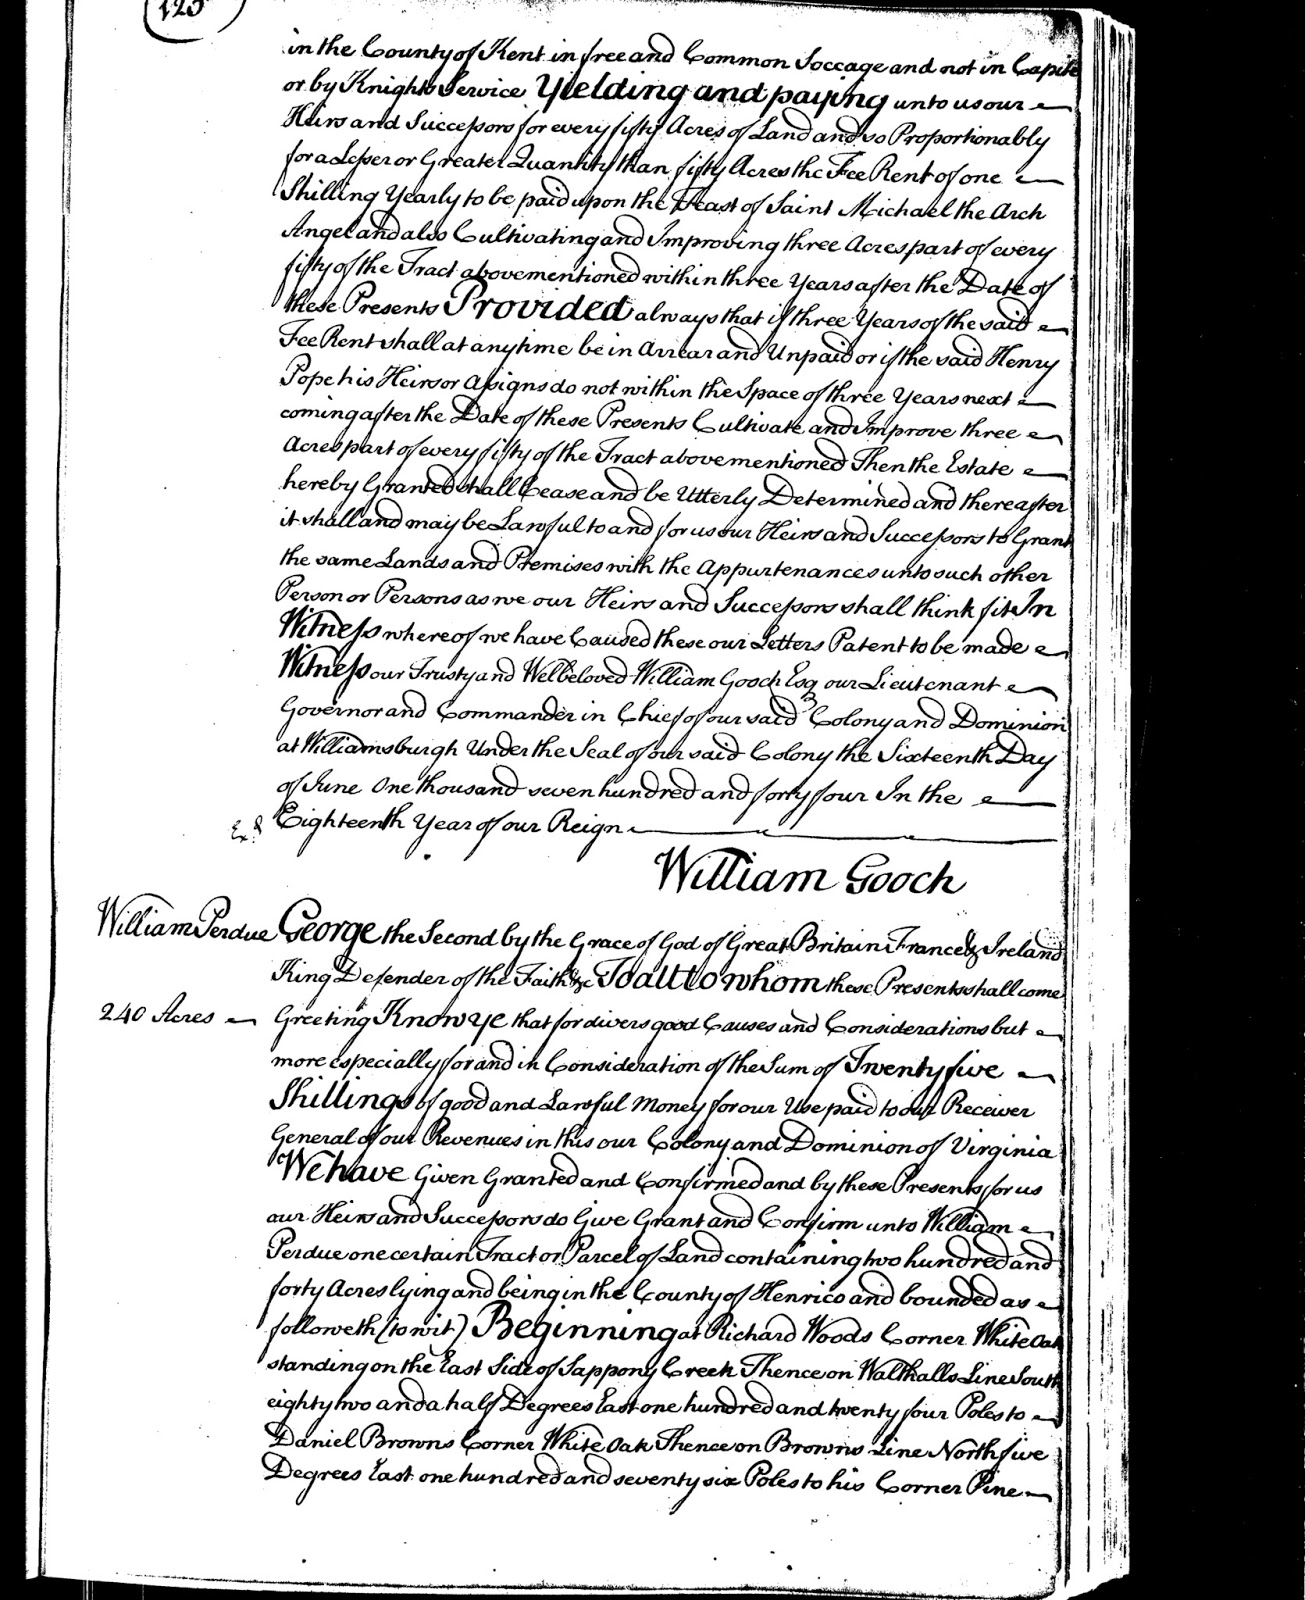 125
in the County of Kent in free and Common Soccage and not in Capite
or by Knights Service Yielding and paying unto us our
Heirs and Successors for every fifty Acres of Land and so Proportionably
for a Lesser or Greater Quantity than fifty Acres the Fee Rent of one
Shilling Yearly to be paid upon the Feast of Saint Michael the Arch
Angel and also Cultivating and Improving three Acres part of every
fifty of the Tract abovementioned within three Years after the Date of
these Presents Provided always that if three Years of the said
Fee Rent shall at any time be in Arrear and Unpaid or if the said Henry
Pope his Heirs or Assigns do not within the Space of three Years next
coming after the Date of these Presents Cultivate and Improve three
Acres part of every fifty of the Tract abovementioned Then the Estate
hereby Granted shall Cease and be Utterly Determined and thereafter
it shall and may be Lawful to and for us our Heirs and Successors to Grant
the same Lands and Premises with the Appurtenances unto such other
Person or Persons as we our Heirs and Successors shall think fit In
Witness whereof we have Caused these our Letters Patent to be made
Witness our Trusty and Welbeloved William Gooch Esq our Lieutenant
Governor and Commander in Chief of our said Colony and Dominion
at Williamsburgh Under the Seal of our said Colony the Sixteenth Day
of June One thousand seven hundred and forty four In the
Exd Eighteenth Year of our Reign
William Gooch
William Perdue George the Second by the Grace of God of Great Britain France & Ireland
King Defender of the Faith &c To all to whom these Presents shall come
240 Acres Greeting Know ye that for divers good Causes and Considerations but
more especially for and in Consideration of the Sum of Twenty five
Shillings of good and Lawful Money for our Use paid to our Receiver
General of our Revenues in this our Colony and Dominion of Virginia
We have Given Granted and Confirmed and by these Presents for us
our Heirs and Successors do Give Grant and Confirm unto William
Perdue one certain Tract or Parcel of Land containing two hundred and
forty Acres lying and being in the County of Henrico and bounded as
followeth (to wit) Beginning at Richard Woods Corner White Oak
standing on the East Side of Sappony Creek Thence on Walthalls Line South
eighty two and a half Degrees East one hundred and twenty four Poles to
Daniel Browns Corner White Oak Thence on Browns Line North five
Degrees East one hundred and seventy six Poles to his Corner Pine